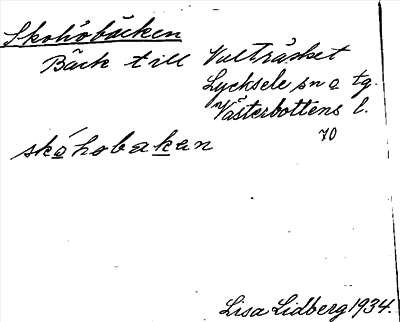 Skohöbäcken
Bäck till Vulträsket
Lycksele sn o tg.
Västerbottens l.
70
skóhobakan
Lisa Lidberg 1934.